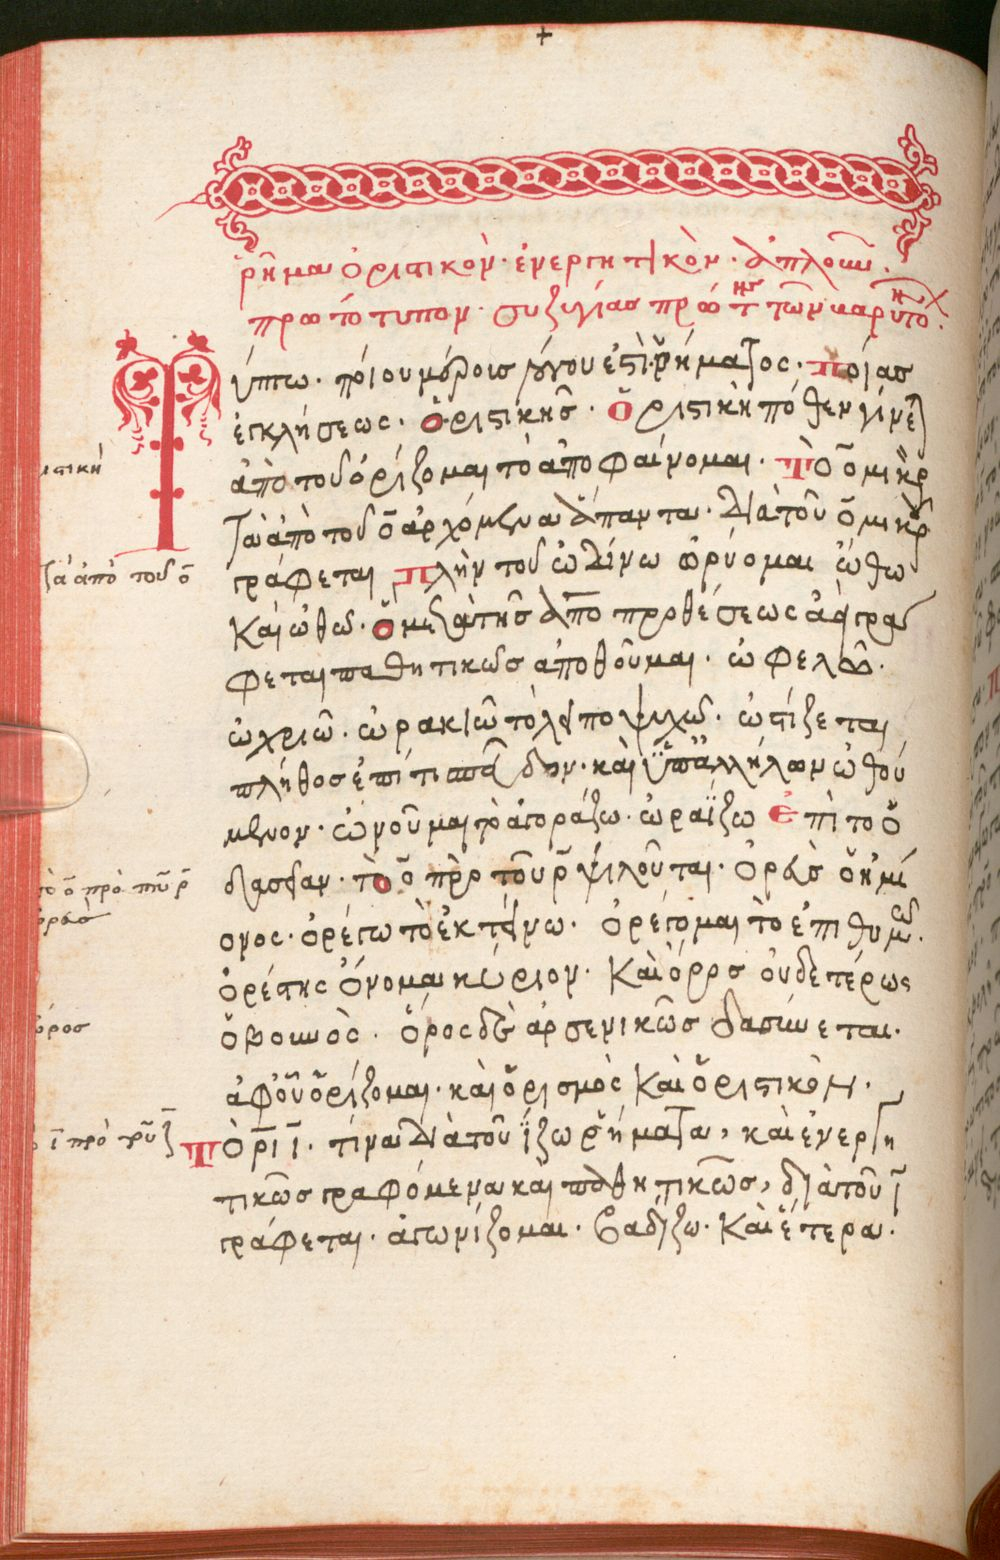 +
ῥῆμα ὁριστικὸν· ἐνεργητικὸν· ἁπλοῦν·
πρωτότυπον· συζυγίας πρώτης τῶν βαρυτόν·
Τύπτω· ποίου μέρους λόγου ἐστὶ· ῥήματος· Ποίας
ἐγκλήσεως· Ὁριστικῆς· Ὁριστικὴ πόθεν γίνεται
ἀπὸ τοῦ ὁρίζομαι τὸ ἀποφαίνομαι· Τὸ ο μικρὸν
Τὰ ἀπὸ τοῦ ο ἀρχόμενα ἅπαντα· διὰ τοῦ ο μικροῦ
γράφεται Πλὴν τοῦ ὠδίνω ὠρύομαι ὤθω
καὶ ὠθῶ· Ὃ μετὰ τῆς ἀπὸ προθέσεως
φεται παθητικῶς ἀποθοῦμαι· ὠφελῶ·
ὠχριῶ· ὠρακιῶ τὸ λειποψυχῶ· ὠστίζεται
πλῆθος ἐπί τι σπεῦδον· καὶ ὑπαλλήλων ὠθού
μενον· ὠνοῦμαι τὸ ἀγοράζω· ὡραΐζω Ἐπὶ τοῦ
δασεῖαν· τὸ ο πρὸ τοῦ ρ ψιλοῦται· Ὀρεὺς ὁ ἡμί
ονος· ὀρέγω τὸ ἐκτείνω· Ὀρέγομαι τὸ ἐπιθυμῶ·
Ὀρέστης Ὄνομα κύριον· Καὶ ὄρος οὐδετέρως
ὁ βουνὸς· Ὅρος δὲ ἀρσενικῶς δασύνεται·
ἀφ' οὗ ὁρίζομαι· καὶ ὁρισμὸς καὶ ὁριστικὸν·
Τὸ ρι ι· τίνα διὰ τοῦ ίζω ῥήματα, καὶ ἐνεργη
τικῶς γραφόμενα καὶ παθητικῶς, διὰ τοῦ ι
γράφεται· ἀγωνίζομαι· βαδίζω· Καὶ ἕτερα·
ιστικὴ
ζα ἀπὸ τοῦ ο
τὸ ο πρὸ τοῦ ρ
ὀρεὺς
ὄρος
ι πρὸ τοῦ ζ